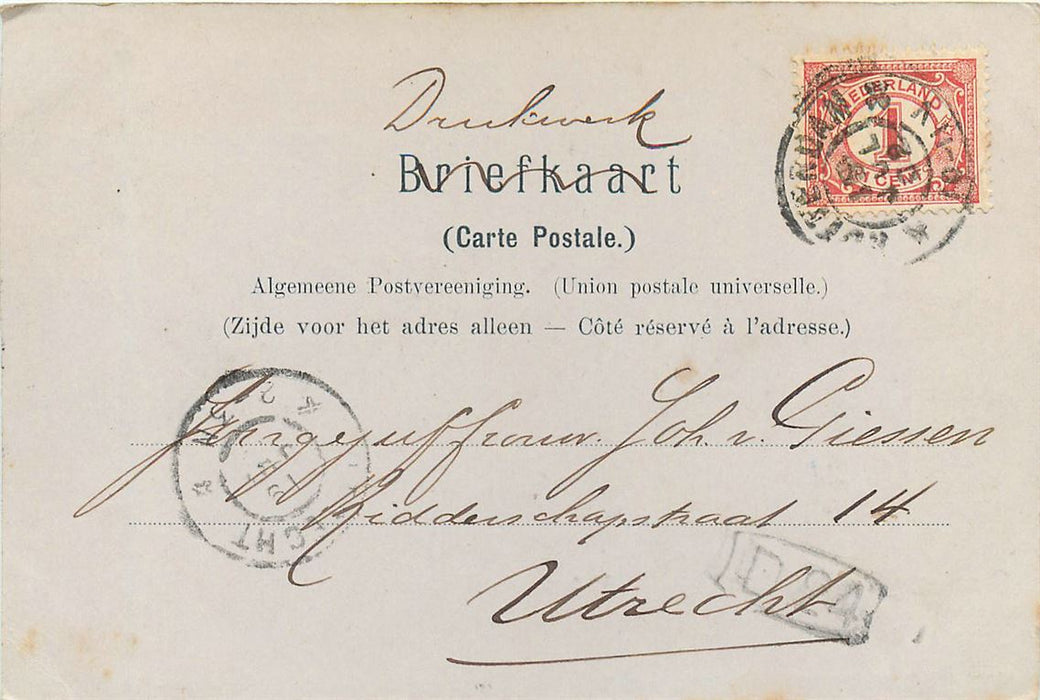 Drukwerk
Briefkaart
(Carte Postale.)
Algemeene Postvereeniging. (Union postale universelle.)
(Zijde voor het adres alleen — Côté réservé à l'adresse.)
NEDERLAND
1
CENT
Joh. v. Giessen
Ridderschapstraat 14
Utrecht
D 24